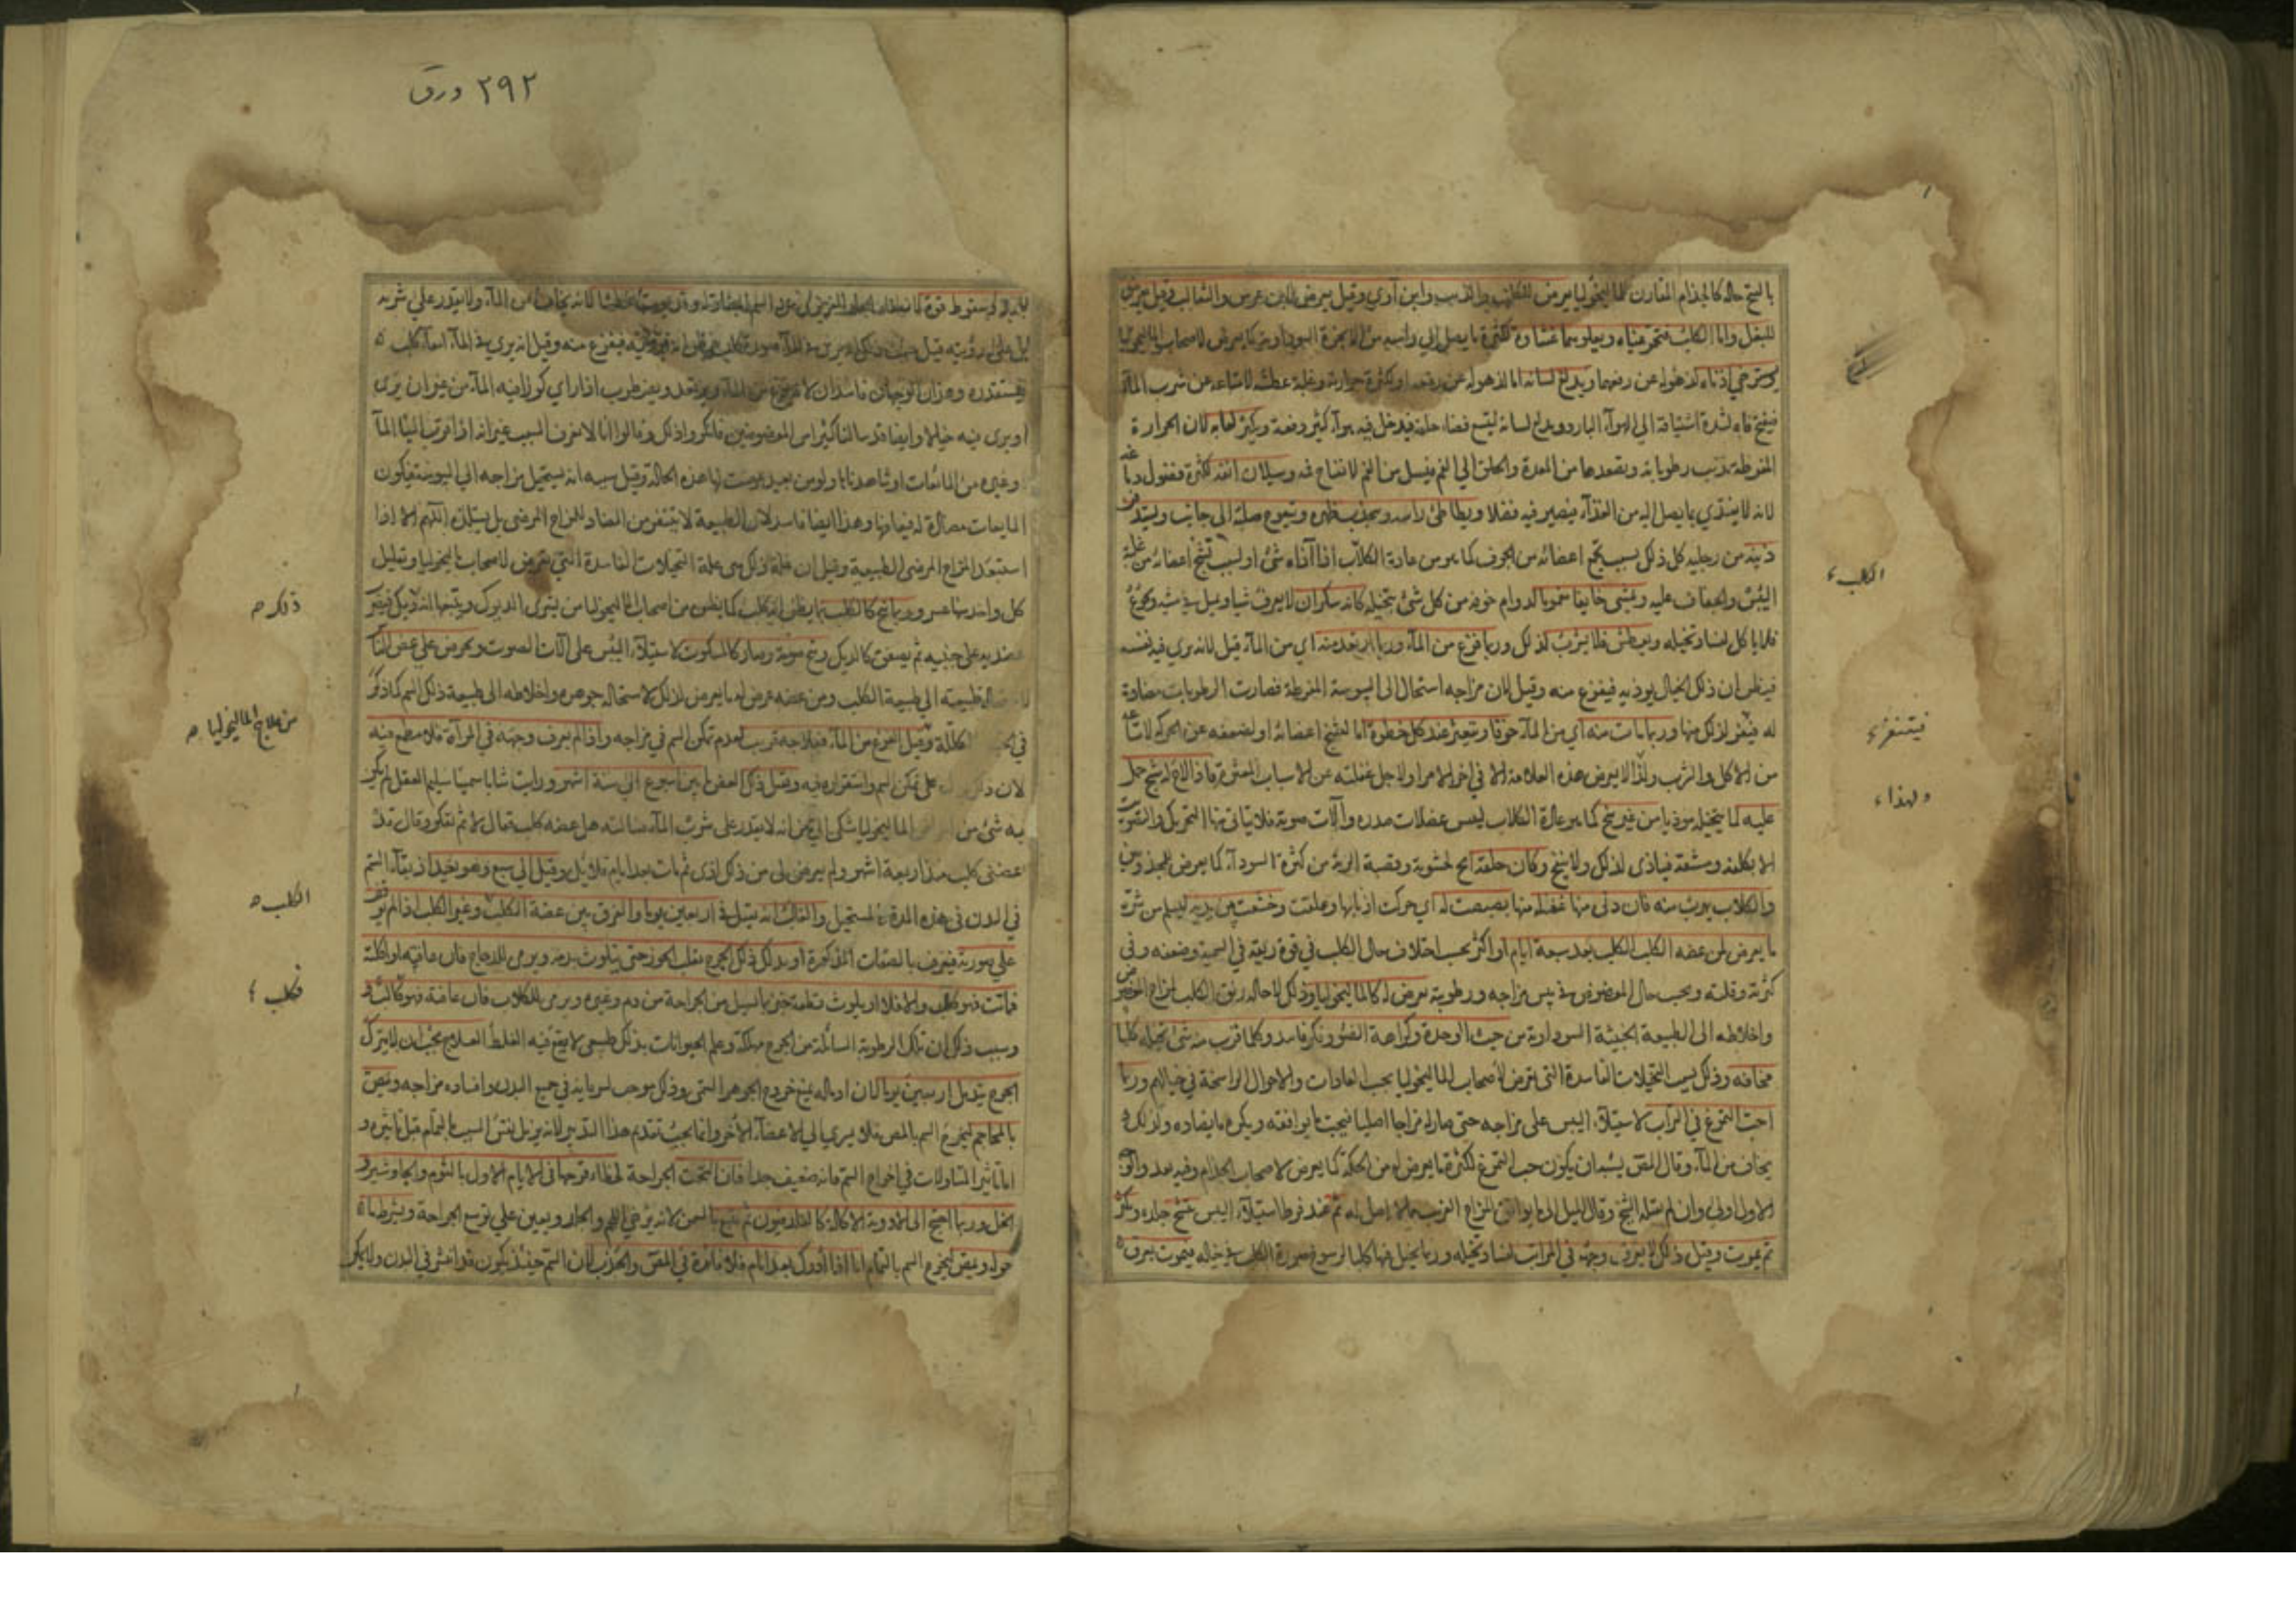 بالشيخ حاله كالجذام المقارن للماليخوليا يعرض للكلب والذئب وابن آوى وقيل يعرض لابن عرس والثعالب وقيل يعرض
للبغل واما الكلب فتحمر عيناه ويعلوهما غشاوة لكثرة ما يصل الى راسه من الابخرة السوداوية كما يعرض لاصحاب الماليخوليا
ويسترخي اذناه لذهوله عن رفعهما ويدلع لسانه اما لذهوله عن رفعه او لكثرة حرارته وغلبة عطشه لامتناعه عن شرب الماء
فيفتح فاه لشدة اشتياقه الى الهواء البارد ويدلع لسانه ليتسع فضاء حلقه فيدخل فيه هواء كثير دفعة ويكثر لعابه لان الحرارة
المفرطة تذيب رطوباته وتصعدها من المعدة والحلق الى الفم فيسيل من الفم لانفتاح فمه وسيلان انفه لكثرة فضول دماغه
لانه لا يغتذي بما يصل اليه من الغذاء فيصير فيه فضلا ويطاطئ راسه ويحدب ظهره ويتعوج صلبه الى جانب ويستدفر
ذنبه من رجليه كل ذلك بسبب تجمع اعضائه من الخوف كما هو من عادة الكلاب اذا آذاه شئ او لسبب تشنج اعضائه من غلبة
اليبس والجفاف عليه ويمشي خايفا مغموما لدوام خوفه من كل شئ يتخيله كانه سكران لا يعرف شيا ويميل في مشيه ويجوع
فلا ياكل لفساد تخيله ويعطش فلا يشرب لذلك وربما فزع من الماء وربما ارتعد منه اي من الماء قيل لانه يرى فيه نفسه
فيظن ان ذلك الخيال يوذيه فيفزع منه وقيل لان مزاجه استحال الى اليبوسة المفرطة فصارت الرطوبات مضادة
له فيتنفر لذلك منها وربما مات منه اي من الماء خوفا ويتعثر عند كل خطوة اما لتشنج اعضائه او لضعفه عن الحركة لامتناعه
من الاكل والشرب ولذا لا يعرض هذه العلامة الا في اخر الامر او لاجل غفلته عن الاسباب المعثرة فاذا لاح له شبح حمل
عليه لما يتخيله موذيا من غير نبح كما هو عادة الكلاب ليبس عضلات صدره وآلات صوته فلا يتاتى منها التحريك والتصويت
الا بكلفة ومشقة فيتاذى لذلك ولا ينبح وكان حلقه ابح لخشونة وقصبة الرية من كثرة السوداء كما يعرض للمجذومين
والكلاب يهرب منه فان دنى منها غفلة منها بصبصت له اي حركت اذنابها وتملقت وخشعت بين يديه ليسلم من شره
ما يعرض لمن عضه الكلب الكلب بعد سبعة ايام او اكثر بحسب اختلاف حال الكلب في قوة ريقه في السمية وضعفه وفي
كثرته وقلته وبحسب حال المعضوض في يبس مزاجه ورطوبته يعرض له كالماليخوليا وذلك لاحالة ريق الكلب لمزاج المعضوض
واخلاطه الى الطبيعة الخبيثة السوداوية من حب الوحدة وكراهة الضوء وفكر فاسد وكلما قرب منه شئ تخيله كلبا
مخافه وذلك لسبب التخيلات الفاسدة التي تعرض لاصحاب الماليخوليا بحسب العادات والاحوال الراسخة في خيالهم وربما
احب التمرغ في التراب لاستيلاء اليبس على مزاجه حتى صار له مزاجا اصليا فيحب ما يوافقه ويكره ما يضاده ولذلك
يخاف من الماء وقال المص يشبه ان يكون حب التمرغ لكثرة ما يعرض له من الحكة كما يعرض لاصحاب الجذام وفيه بعد والوجه
الاول اولى وان لم يقله الشيخ وقال الميل الى ما يوافق المزاج الغريب مما لا اصل له ثم عند فرط استيلاء اليبس تشنج جلده وتكزز
ثم يموت وقيل ذلك لا يعرف وجهه في المرآة لفساد تخيله وربما تخيل فيها كلبا لرسوخ صورة الكلب في خياله فيموت بعرق
الكلب
فيتنفر
ولهذا
٢٩٢ ورق
بارد وسقوط قوة ويموت عطشا لانه يخاف من الماء ولا يقدر على شربه
بل على رؤيته قيل فيفزع منه وقيل انه يرى في الماء امعاء كلب
فيستقذره وهذان الوجهان فاسدان لانه يفزع من الماء ويرتعد ويضطرب اذا راى كوزا فيه الماء من غير ان يرى
او يرى فيه خيالا وايضا قد سالنا كثيرا من المعضوضين فانكروا ذلك وقالوا انا لا نعرف السبب غير انه اذا قرب الينا الماء
وغيره من المائعات او شاهدناها ولو من بعيد عرضت لنا هذه الحالة وقيل سببه انه يستحيل مزاجه الى اليبوسة فيكون
المايعات مضادة له فيعافها وهذا ايضا فاسد لان الطبيعة لا يتنفر من المضاد للمزاج المرضي بل يستلذه اللهم الا اذا
استعد المزاج المرضي للطبيعة وقيل ان علة ذلك هي علة التخيلات الفاسدة التي تعرض لاصحاب الماليخوليا وتعليل
كل واحد منها عسر وربما نبح كالكلب لما يظن انه كلب كما يظن من اصحاب الماليخوليا من يشتري الديوك ويتبعها انه ديك فيضرب
عضديه على جنبيه ثم يصعق كالديك وبح صوته وصار كالمسكوت لاستيلاء اليبس على آلات الصوت ويحرص على عض الناس
طبيعته الى طبيعة الكلب ومن عضه عرض له ما يعرض لذلك لاستحالة جوهره واخلاطه الى طبيعة ذلك السم كما ذكر
في الكلب وقبل الفزع من الماء فعلاجه قريب لعدم تمكن السم في مزاجه واذا لم يعرف وجهه في المرآة فلا مطمع فيه
لان ذلك على تمكن السم واستقراره فيه وقيل ذلك العض بين اسبوع الى ستة اشهر ورايت شابا سمينا سليم العقل لم يكن
به شئ من الماليخوليا شكى الي يحيى انه لا يقدر على شرب الماء فسالته هل عضه كلب فقال لا ثم تفكر وقال قد
عضني كلب منذ اربعة اشهر ولم يعرض لي من ذلك اذى ثم مات بعد ايام قلائل وقيل الى سبع وهو بعيد اذ بقاء السم
في البدن في هذه المدة مستحيل والغالب انه يقتل في اربعين يوما والفرق بين عضة الكلب وغير الكلب اذا لم يوقف
على صورته فيعرف بالصفات المذكورة او يدلك ذلك الجرح بقلب الجوز حتى يتلوث بدمه ويرمى للدجاج فان عافته او اكلته
فماتت فهو كلب والا فلا او يلوث قطعة خبز بما يسيل من الجراحة من دم وغيره ويرمى للكلاب فان عافته فهو كالب
وسبب ذلك ان تلك الرطوبة السائلة من الجرح مهلكة وعلم الحيوانات بذلك طبيعي لا يقع فيه الغلط العلاج يجب ان لا يترك
الجرح يندمل اربعين يوما لان ادماله يمنع خروج الجوهر السمي وذلك موجب لسريانه في جميع البدن وافساده مزاجه ويمص
بالمحاجم ليخرج السم بالمص فلا يسري الى الاعضاء الاخر وانما يجب تقديم هذا التدبير لانه يزيل نفس السبب بالتمام قبل تاثيره و
اما تاثير المتناولات في اخراج السم فانه ضعيف جدا فان التحمت الجراحة لخطا او قرحها في الايام الاول بالثوم والجاوشير و
الخل وربما احتج الى الادوية الاكالة كالفلدفيون ثم يتبع بالسمن لانه يرخي اللحم والجلد ويعين على توسع الجراحة ويشرط ما
حوله ويمص ليخرج السم بالتمام اما اذا ادرك بعد ايام فلا فائدة في المص والجذب لان السم حينئذ يكون قد انتشر في البدن ولا يمكن
ذلك
من علاج الماليخوليا
الكلب
فكلب